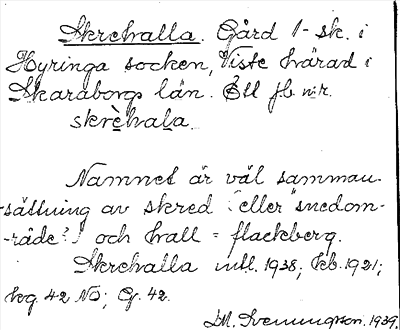 Skrehalla. Gård 1 - sk. i
Hyringa socken, Viste härad i
Skaraborgs län. Ett fb. nr.
skrèhala.
Namnet är väl samman-
-sättning av skred (eller snedom-
-råde?) och hall = flackberg.
Skrehalla mtl. 1938; kb. 1921;
heg. 42 NO; G. 42.
M. Svenungson. 1939.